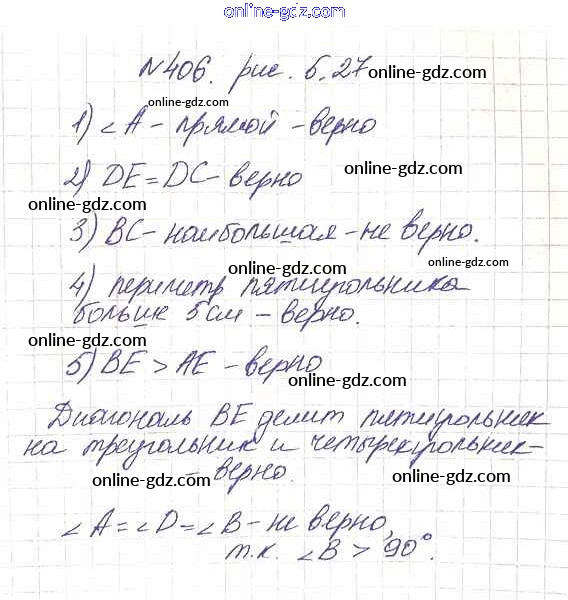 online-gdz.com
№406. рис. 5.27
online-gdz.com
online-gdz.com
1) ∠A - прямой - верно
online-gdz.com
2) DE = DC - верно
online-gdz.com
online-gdz.com
3) BC - наибольшая - не верно.
online-gdz.com
4) периметр пятиугольника
online-gdz.com
больше 5 см - верно.
online-gdz.com
5) BE > AE - верно
online-gdz.com
Диагональ BE делит пятиугольник
online-gdz.com
на треугольник и четырехугольник -
- верно.
online-gdz.com
online-gdz.com
∠A = ∠D = ∠B - не верно,
т.к. ∠B > 90°.
online-gdz.com
online-gdz.com